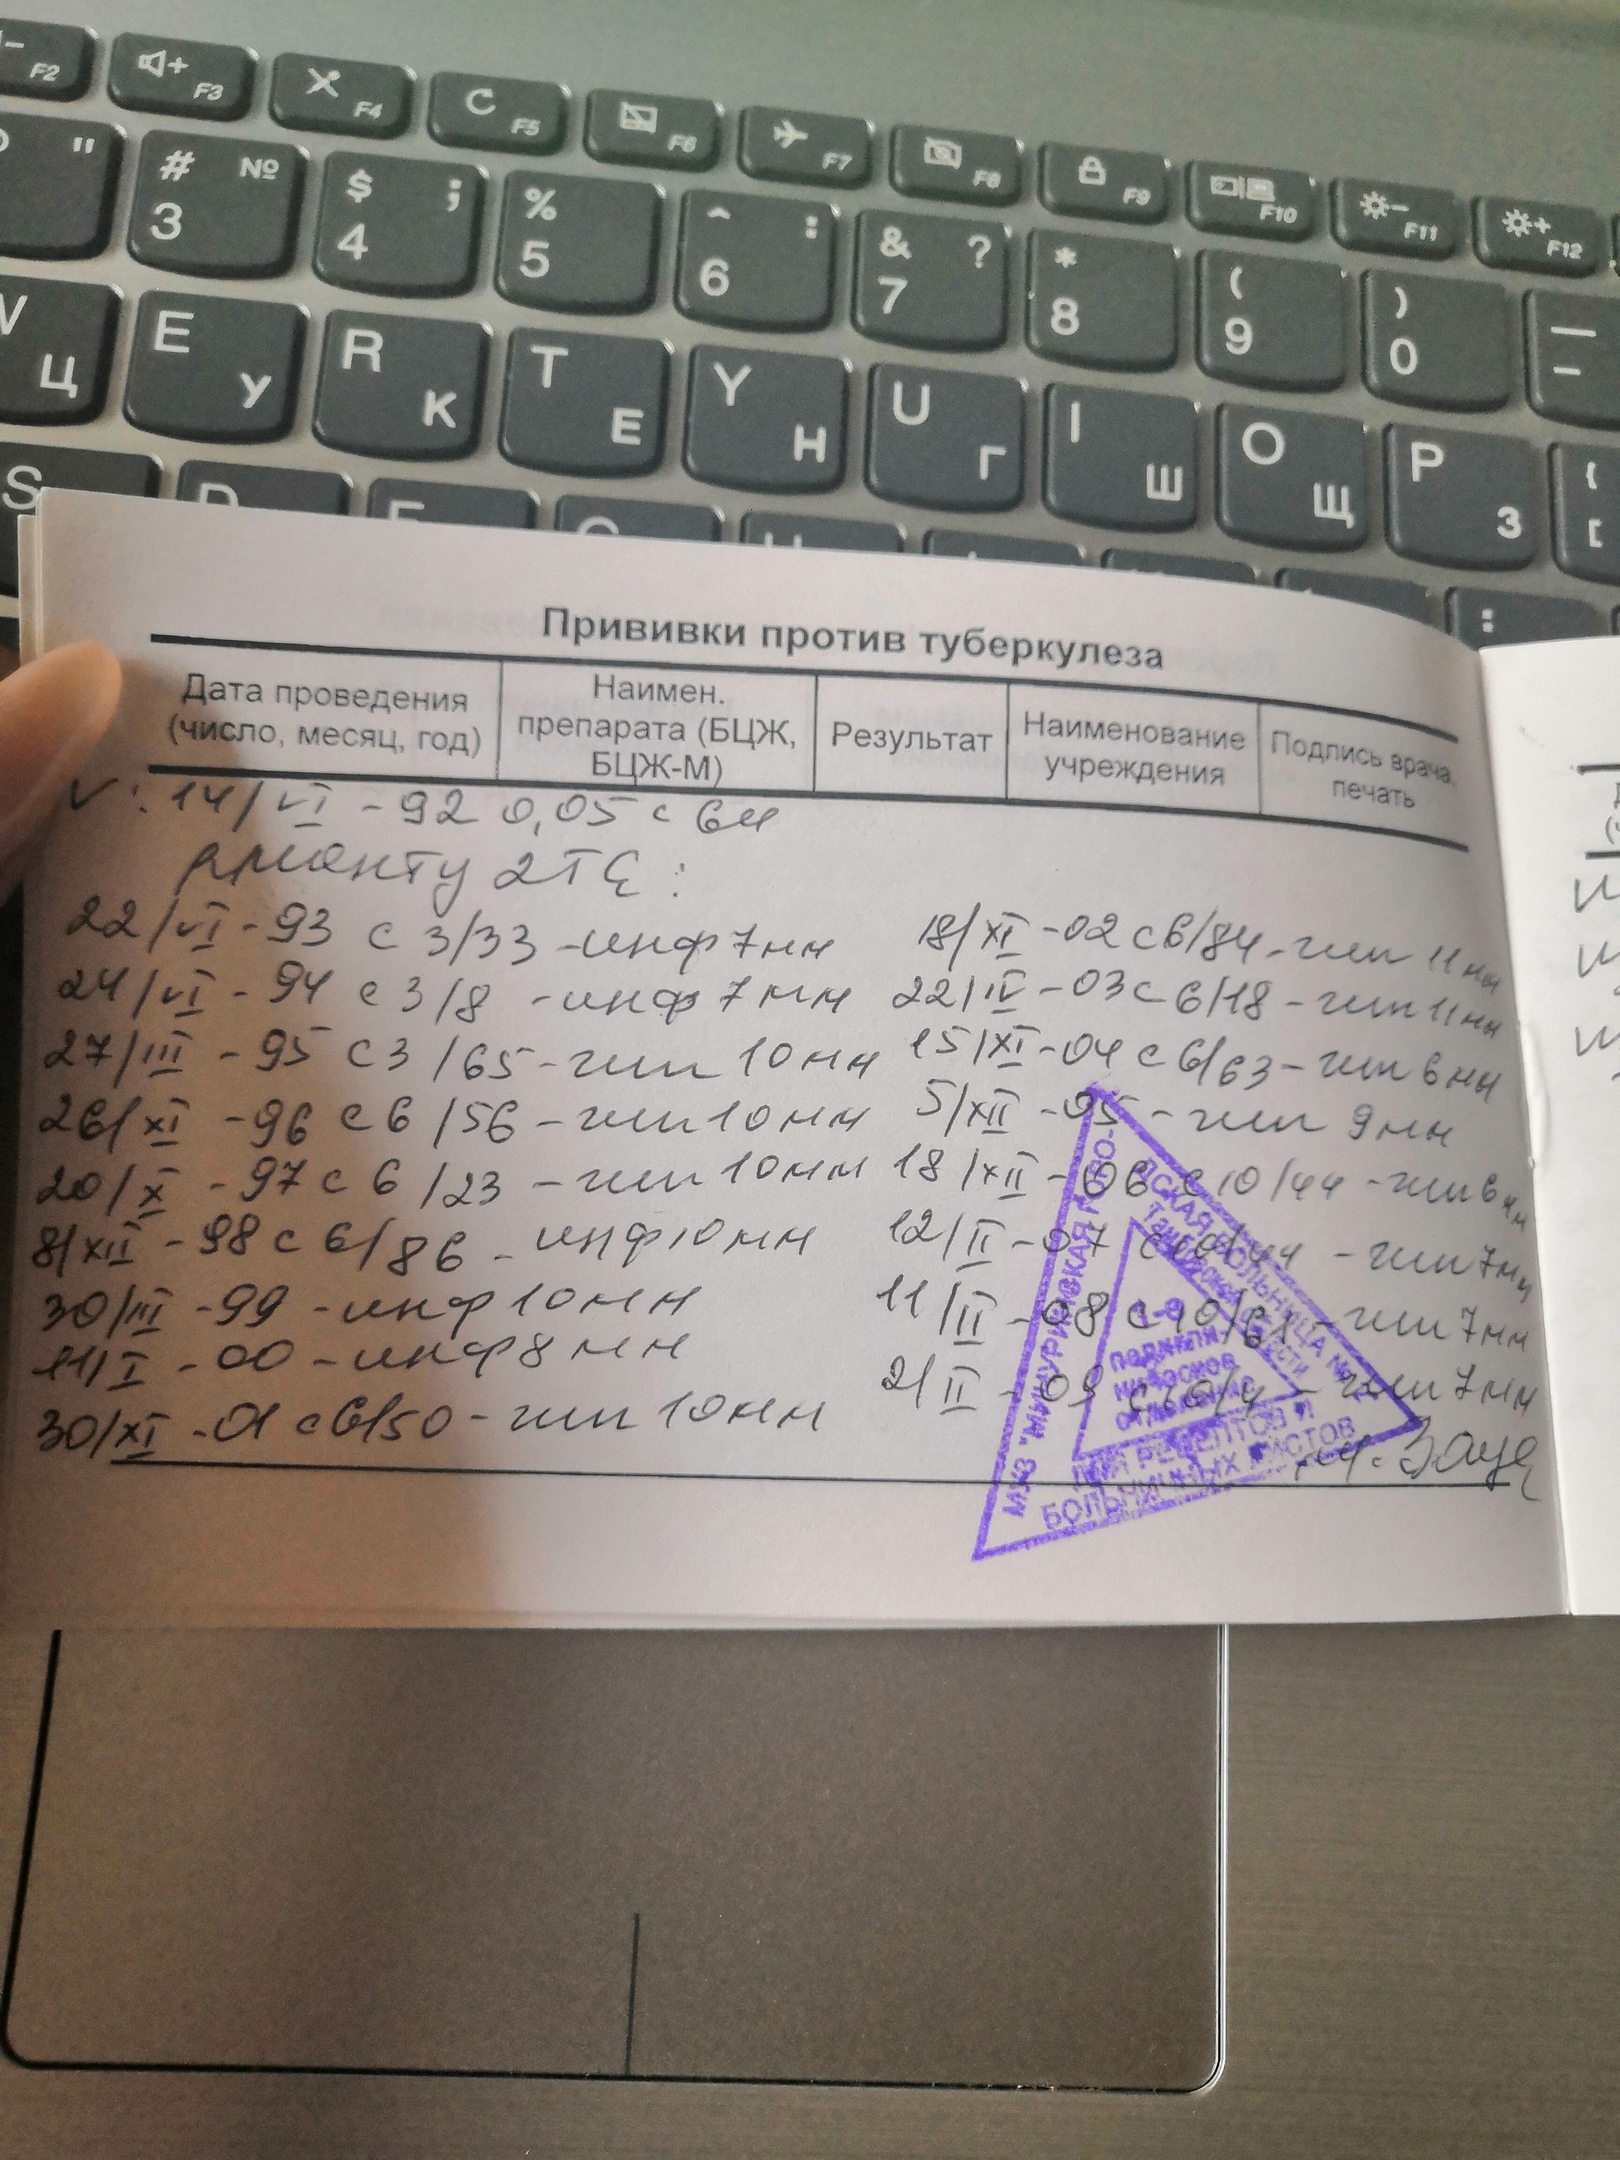 F2
F3
F4
F5
F6
F7
F8
F9
F10
F11
F12
"
# № 3
$ ; 4
% 5
^ : 6
& ? 7
* 8
( 9
) 0
W Ц
E У
R К
T Е
Y Н
U Г
I Ш
O Щ
P З
S
Прививки против туберкулеза
Дата проведения (число, месяц, год)
Наимен. препарата (БЦЖ, БЦЖ-М)
Результат
Наименование учреждения
Подпись врача, печать
V: 14/VI - 92 0,05 с 614
р. манту 2ТЕ:
22/VI - 93 с 3/33 - инф 7мм
24/VI - 94 с 3/8 - инф 7мм
27/III - 95 с 3/65 - гип 10мм
26/XI - 96 с 6/56 - гип 10мм
20/X - 97 с 6/23 - гип 10мм
8/XII - 98 с 6/86 - инф 10мм
30/III - 99 - инф 10мм
11/I - 00 - инф 8мм
30/XI - 01 с 6/50 - гип 10мм
18/XI - 02 с 6/84 - гип 11мм
22/IV - 03 с 6/18 - гип 11мм
15/XI - 04 с 6/63 - гип 6мм
5/XII - 05 - гип 9мм
18/XII - 06 с 10/44 - гип 6мм
12/II - 07 с 10/44 - гип 7мм
11/II - 08 с 10/61 - гип 7мм
2/II - 09 с 10/4 - гип 7мм
МУЗ "МИЧУРИНСКАЯ ГОРОДСКАЯ БОЛЬНИЦА №
Тамбовской области
ДЛЯ РЕЦЕПТОВ И
БОЛЬНИЧНЫХ ЛИСТОВ